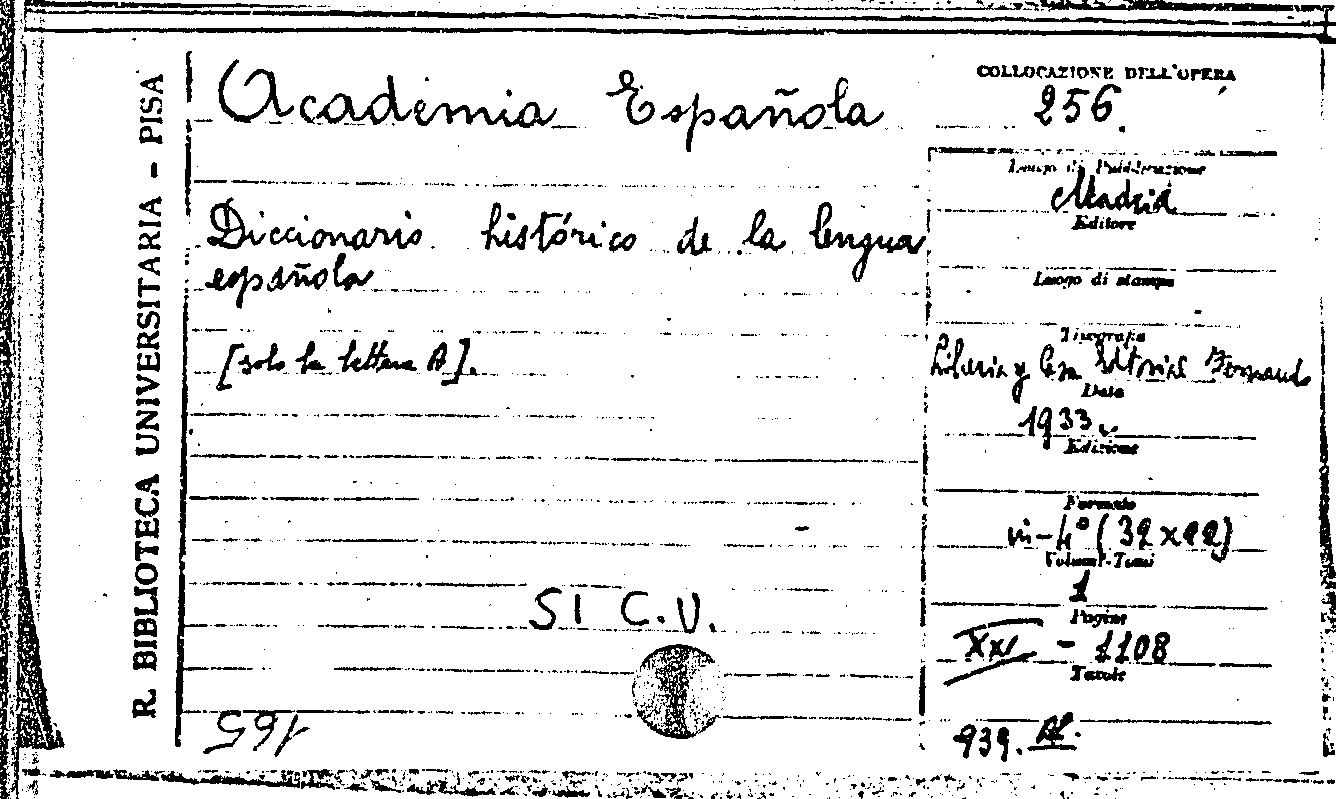 R. BIBLIOTECA UNIVERSITARIA - PISA
Academia Española
Diccionario histórico de la lengua
española
[solo la lettera A].
SI C.V.
165
COLLOCAZIONE DELL'OPERA
256.
Luogo di Pubblicazione
Madrid
Editore
Luogo di stampa
Tipografia
Libreria y Casa Editorial Hernando
Data
1933.
Edizione
Formato
in-4° (32x22)
Volumi-Tomi
1
Pagine
XXV - 1108
Tavole
939.